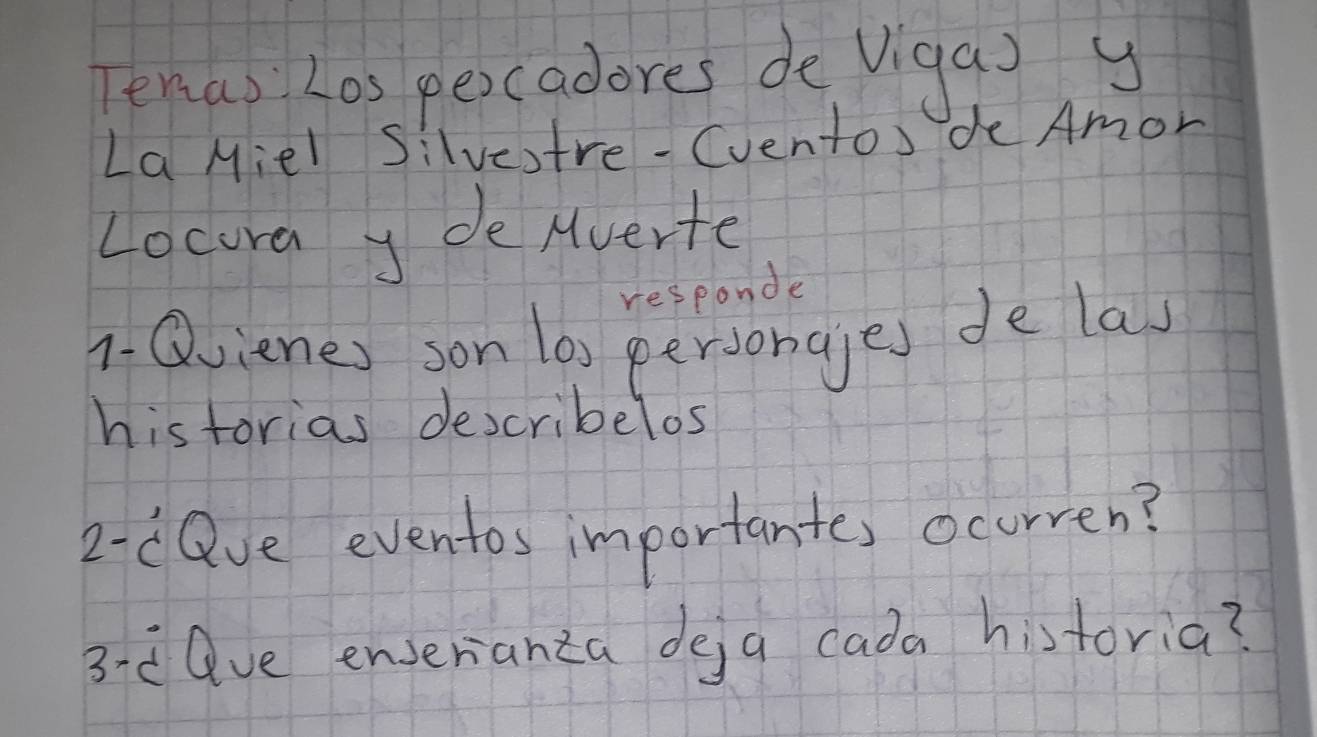 Temas: Los pescadores de Vigas y
La Miel Silvestre - Cuentos de Amor
Locura y de Muerte
responde
1- Quienes son los personajes de las
historias describelos
2- ¿Que eventos importantes ocurren?
3- ¿Que enseñanza deja cada historia?